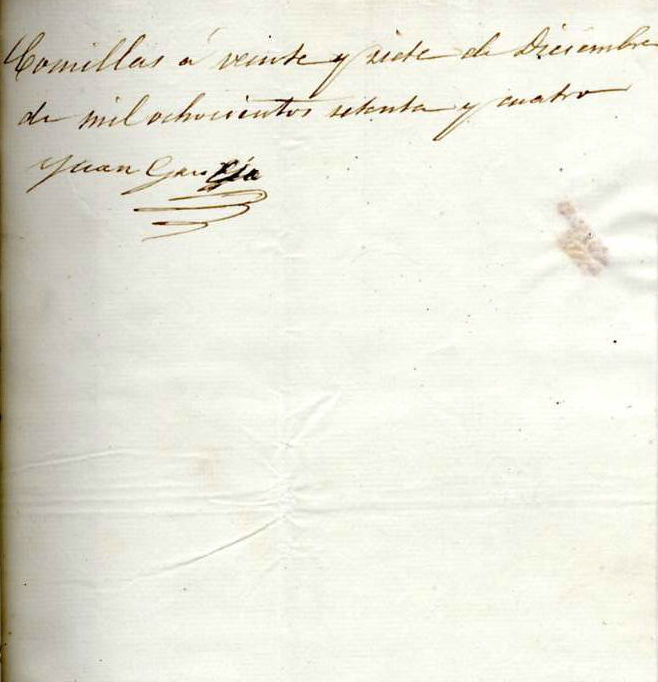 Comillas á veinte y siete de Diciembre
de mil ochocientos setenta y cuatro
Juan García